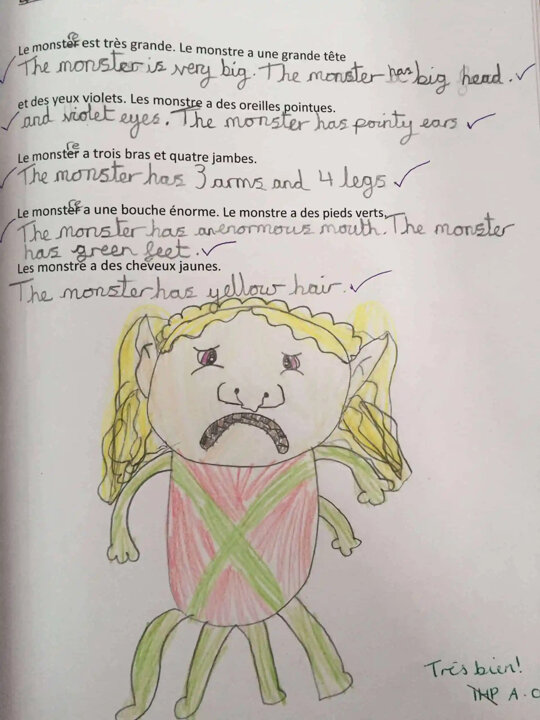 re
Le monster est très grande. Le monstre a une grande tête
The monster is very big. The monster has big head.
et des yeux violets. Les monstre a des oreilles pointues.
and violet eyes. The monster has pointy ears
re
Le monster a trois bras et quatre jambes.
The monster has 3 arms and 4 legs
re
Le monster a une bouche énorme. Le monstre a des pieds verts.
The monster has an enormous mouth. The monster
has green feet.
Les monstre a des cheveux jaunes.
The monster has yellow hair.
Très bien!
A.C